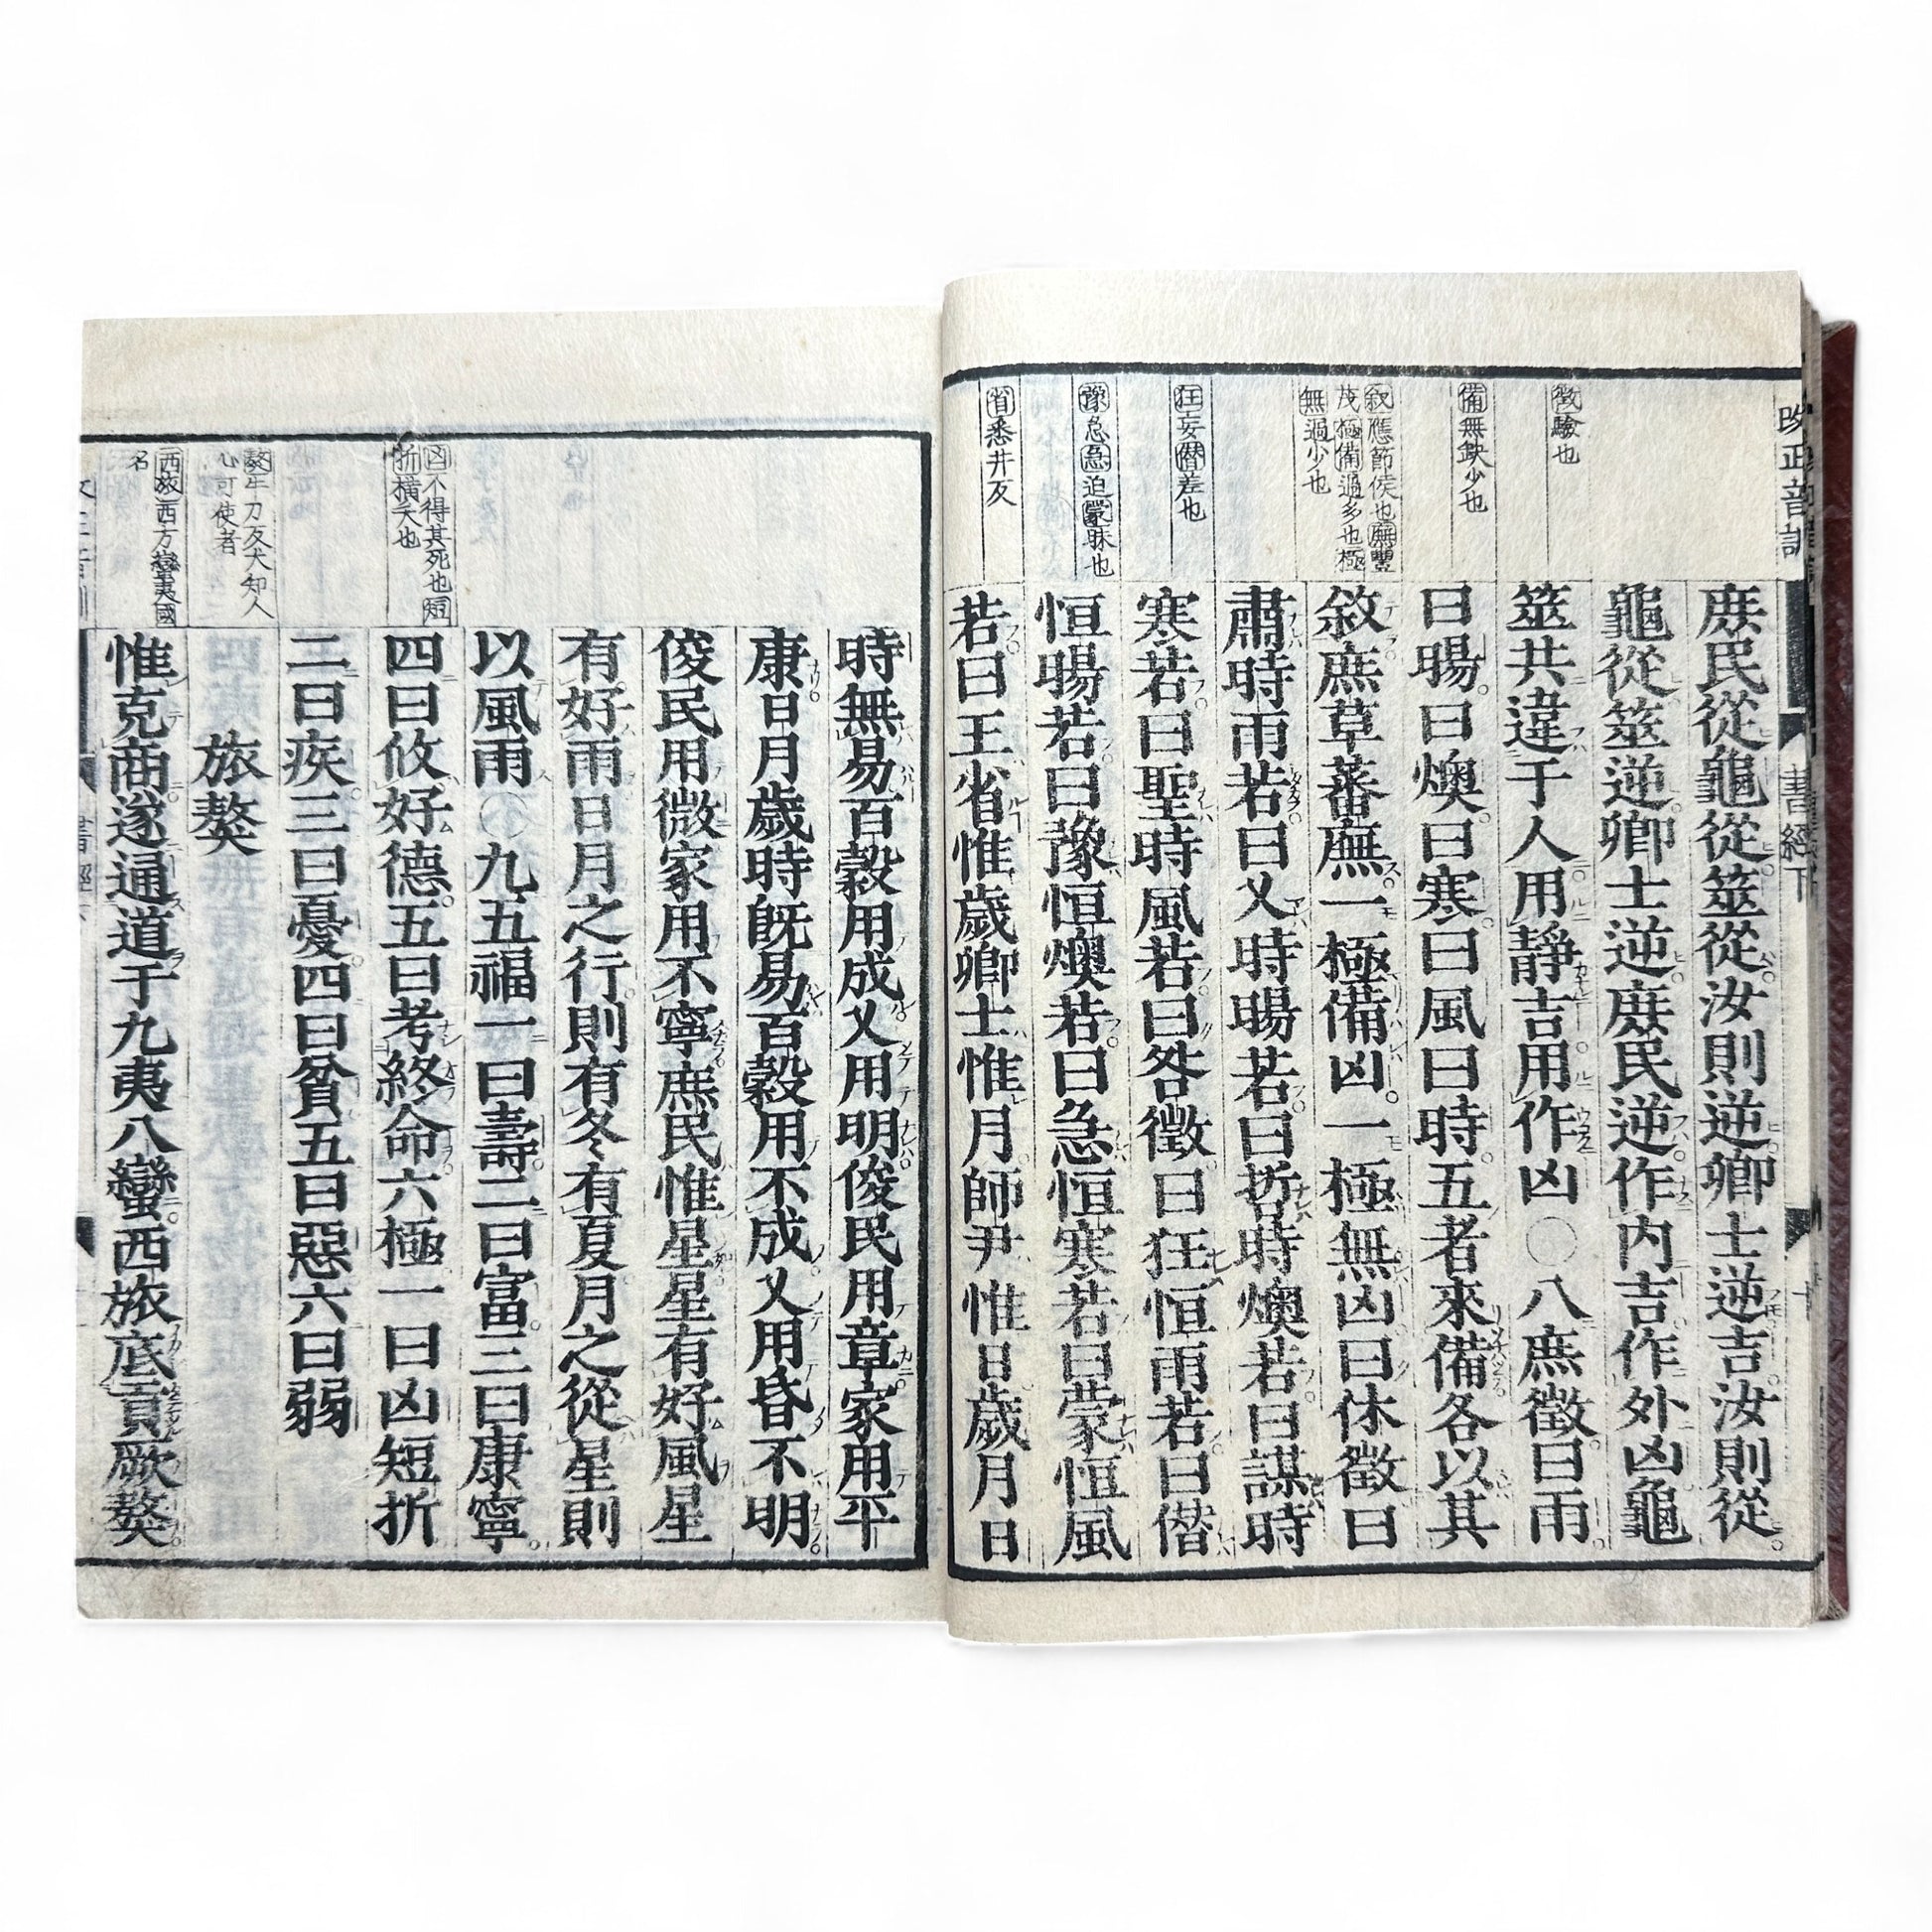 徵驗也
備無缺少也
敘應節候也廡豐
茂極備過多也極
無過少也
狂妄僣差也
豫怠急迫蒙昧也
省悉井反
庶民從龜從筮從汝則逆卿士逆吉汝則從
龜從筮逆卿士逆庶民逆作内吉作外凶龜
筮共違于人用靜吉用作凶〇八庶徵曰雨
曰暘曰燠曰寒曰風曰時五者來備各以其
敘庶草蕃廡一極備凶一極無凶曰休徵曰
肅時雨若曰乂時暘若曰哲時燠若曰謀時
寒若曰聖時風若曰咎徵曰狂恒雨若曰僭
恒暘若曰豫恒燠若曰急恒寒若曰蒙恒風
若曰王省惟歲卿士惟月師尹惟日歲月日
書經下
凶不得其死也短
折橫夭也
獒牛刀反犬知人
心可使者
西旅西方蠻夷國
名
時無易百穀用成乂用明俊民用章家用平
康日月歲時旣易百穀用不成乂用昏不明
俊民用微家用不寧庶民惟星星有好風星
有好雨日月之行則有冬有夏月之從星則
以風雨〇九五福一曰壽二曰富三曰康寧
四曰攸好德五曰考終命六極一曰凶短折
二曰疾三曰憂四曰貧五曰惡六曰弱
旅獒
惟克商遂通道于九夷八蠻西旅底貢厥獒